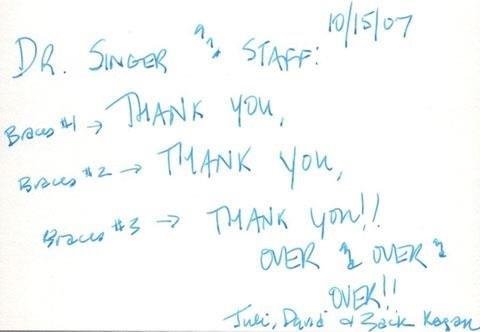 10/15/07
DR. SINGER & STAFF:
Braces #1 → THANK YOU,
Braces #2 → THANK YOU,
Braces #3 → THANK YOU!!
OVER & OVER &
OVER!!
Juli, David & Zack Kagan